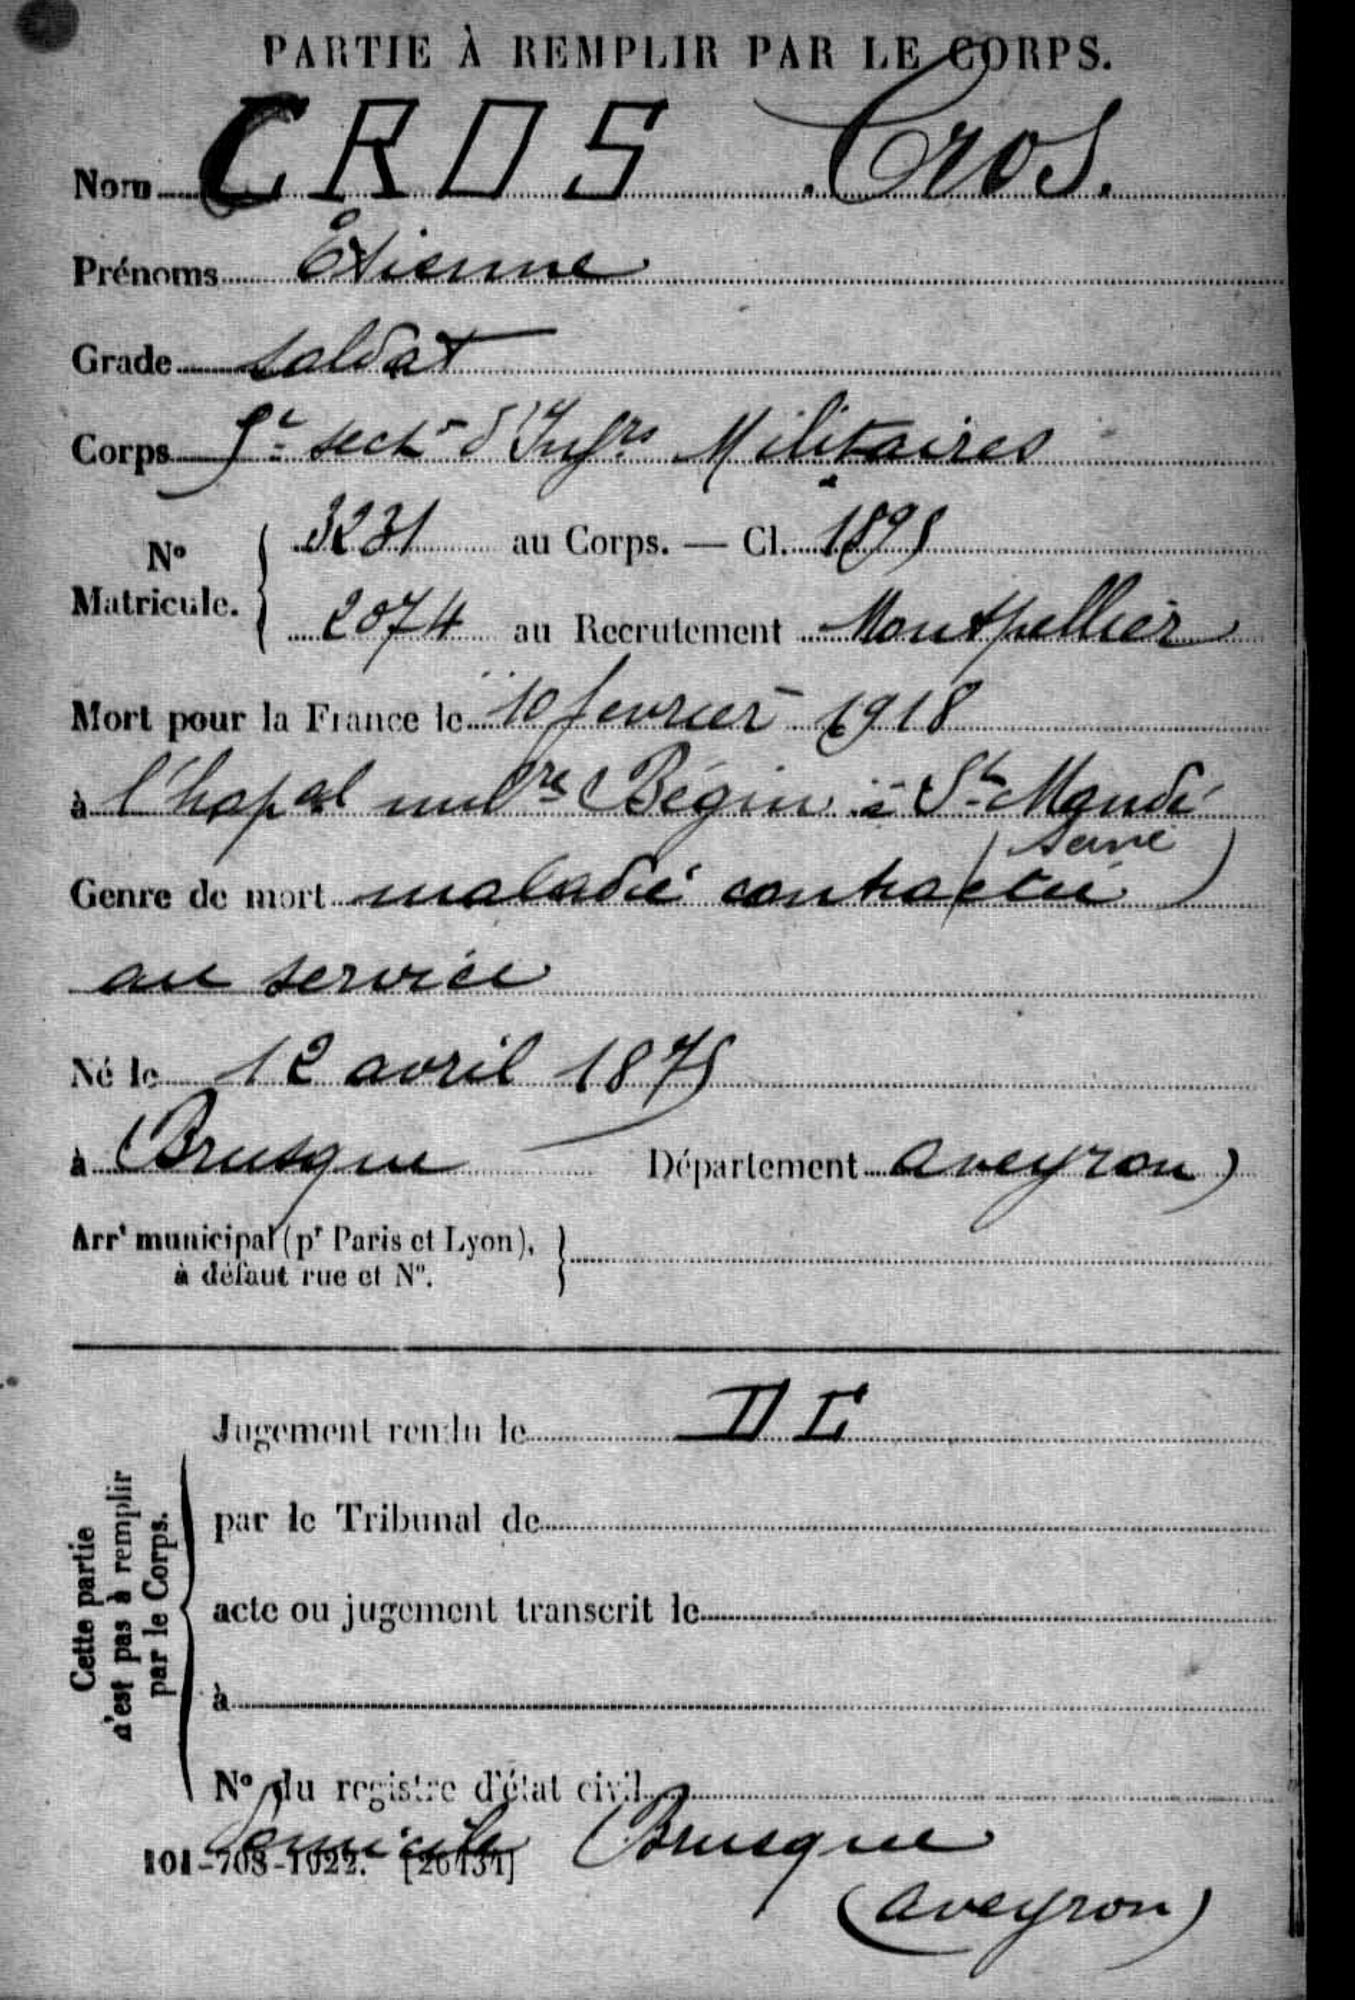 PARTIE À REMPLIR PAR LE CORPS.
Nom CROS Cros.
Prénoms Étienne
Grade soldat
Corps 5e sectn d'Infrs Militaires
No Matricule. 3231 au Corps. — Cl. 1895
2074 au Recrutement Montpellier
Mort pour la France le 10 fevrier 1918
à l'hopal milre Bégin à St Mandé
(Seine)
Genre de mort maladie contractée
au service
Né le 12 avril 1875
à Brusque Département Aveyron
Arrt municipal (pr Paris et Lyon),
à défaut rue et No.
Jugement rendu le DC
par le Tribunal de
acte ou jugement transcrit le
à
No du registre d'état civil
Cette partie
n'est pas à remplir
par le Corps.
Domicile Brusque
101-708-1922. [26434]
(Aveyron)